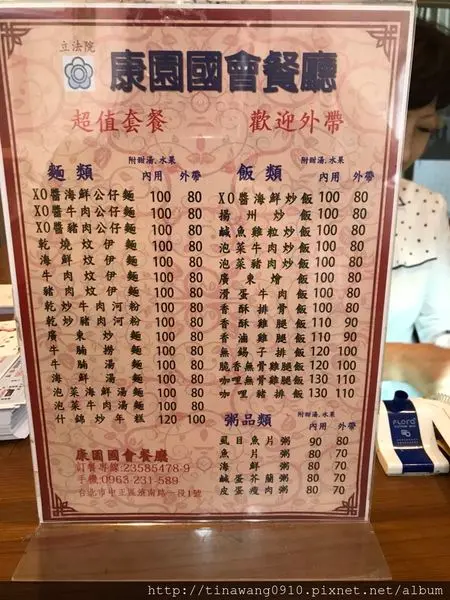 立法院
康園國會餐廳
超值套餐 歡迎外帶
附甜湯.水果
麵類 內用 外帶
XO醬海鮮公仔麵 100 80
XO醬牛肉公仔麵 100 80
XO醬豬肉公仔麵 100 80
乾燒炆伊麵 100 80
海鮮炆伊麵 100 80
牛肉炆伊麵 100 80
豬肉炆伊麵 100 80
乾炒牛肉河粉 100 80
乾炒豬肉河粉 100 80
廣東炒麵 100 80
牛腩撈麵 100 80
牛腩湯麵 100 80
海鮮湯麵 100 80
泡菜海鮮湯麵 100 80
泡菜牛肉湯麵 100 80
什錦炒年糕 120 100
附甜湯.水果
飯類 內用 外帶
XO醬海鮮炒飯 100 80
揚州炒飯 100 80
鹹魚雞粒炒飯 100 80
泡菜牛肉炒飯 100 80
泡菜豬肉炒飯 100 80
廣東燴飯 100 80
滑蛋牛肉飯 100 80
香酥排骨飯 100 80
香酥雞腿飯 110 90
香滷雞腿飯 110 90
無錫子排飯 120 100
脆香無骨雞腿飯 120 100
咖哩無骨雞腿飯 130 110
咖哩豬排飯 130 110
附甜湯.水果
粥品類 內用 外帶
虱目魚片粥 90 80
魚片粥 80 70
海鮮粥 80 70
鹹蛋芥蘭粥 80 70
皮蛋瘦肉粥 80 70
康園國會餐廳
訂餐專線:23585478-9
手機:0963-231-589
台北市中正區濟南路一段1號
http://tinawang0910.pixnet.net/album